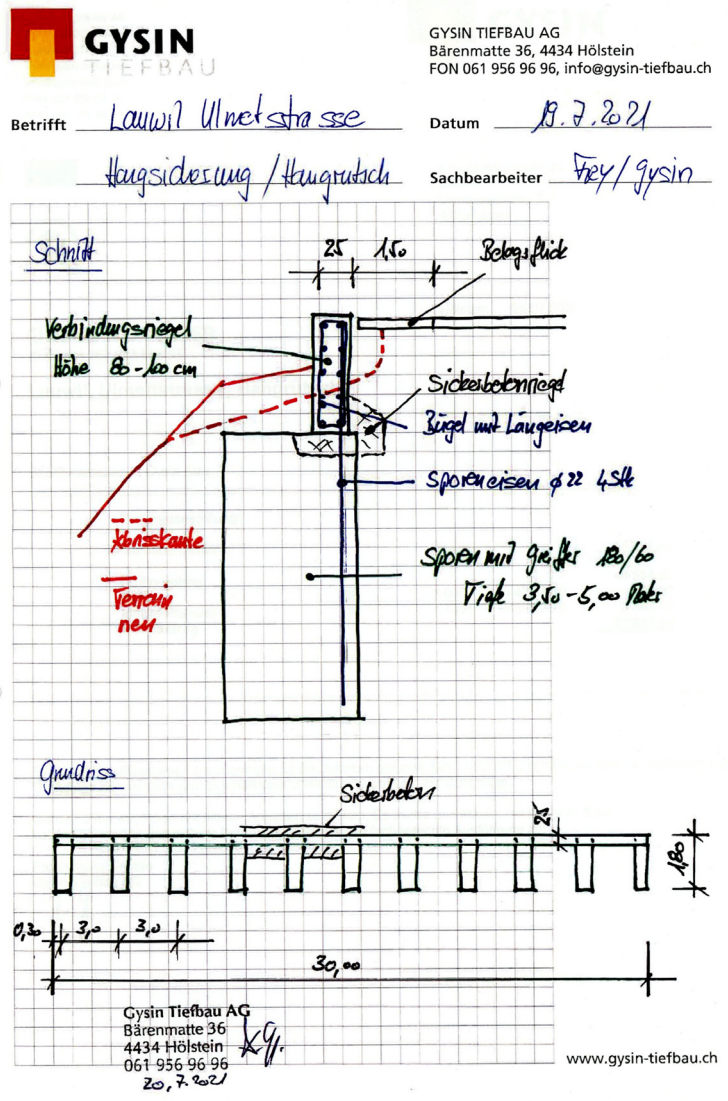 GYSIN
TIEFBAU
GYSIN TIEFBAU AG
Bärenmatte 36, 4434 Hölstein
FON 061 956 96 96, info@gysin-tiefbau.ch
Betrifft Lauwil Ulmetstrasse
Datum 19.7.2021
Hangsicherung / Hangrutsch
Sachbearbeiter Frey / Gysin
Schnitt
25 1,50
Belagsflick
Verbindungsriegel
Höhe 80-100 cm
Sickerbetonriegel
Bügel mit Längeisen
Sporeneisen ø 22 4 Stk
Abrisskante
Sporen mit Greifer 180/60
Tiefe 3,50 - 5,00 Meter
Terrain
neu
Grundriss
Sickerbeton
25
1,80
0,30 3,0 3,0
30,00
Gysin Tiefbau AG
Bärenmatte 36
4434 Hölstein
061 956 96 96
20.7.2021
www.gysin-tiefbau.ch